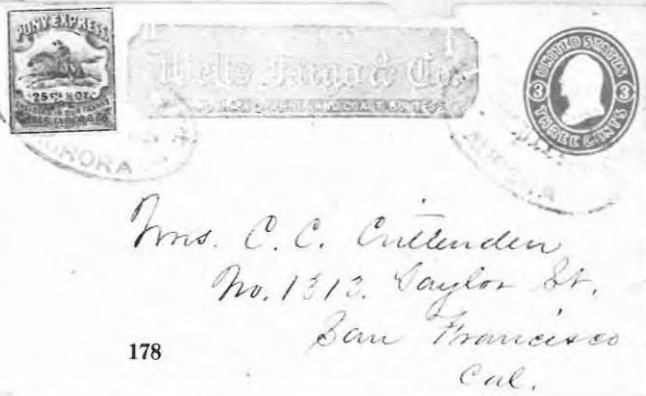 PONY EXPRESS
25 Cts
Wells, Fargo & Co.
UNITED STATES
3 3
THREE CENTS
AURORA
AURORA
Mrs. C. C. Crittenden
No. 1313. Taylor St.
San Francisco
Cal.
178